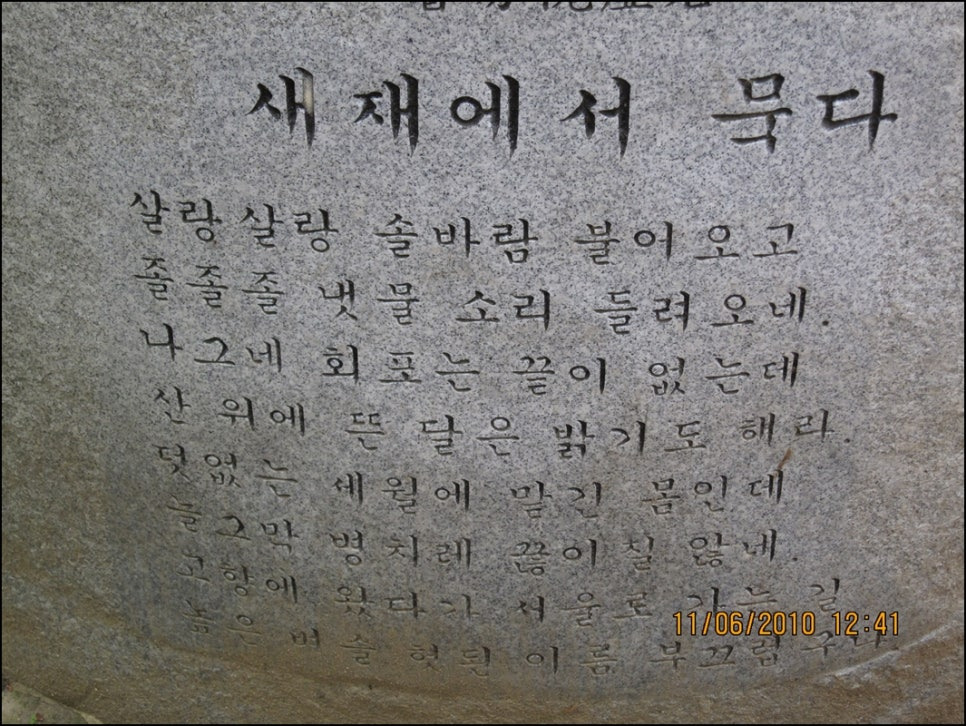 새재에서 묵다
살랑살랑 솔바람 불어오고
졸졸졸 냇물 소리 들려오네.
나그네 회포는 끝이 없는데
산 위에 뜬 달은 밝기도 해라.
덧없는 세월에 맡긴 몸인데
늘그막 병치레 끊이질 않네.
고향에 왔다가 서울로 가는 길
높은 벼슬 헛된 이름 부끄럽구나.
11/06/2010 12:41